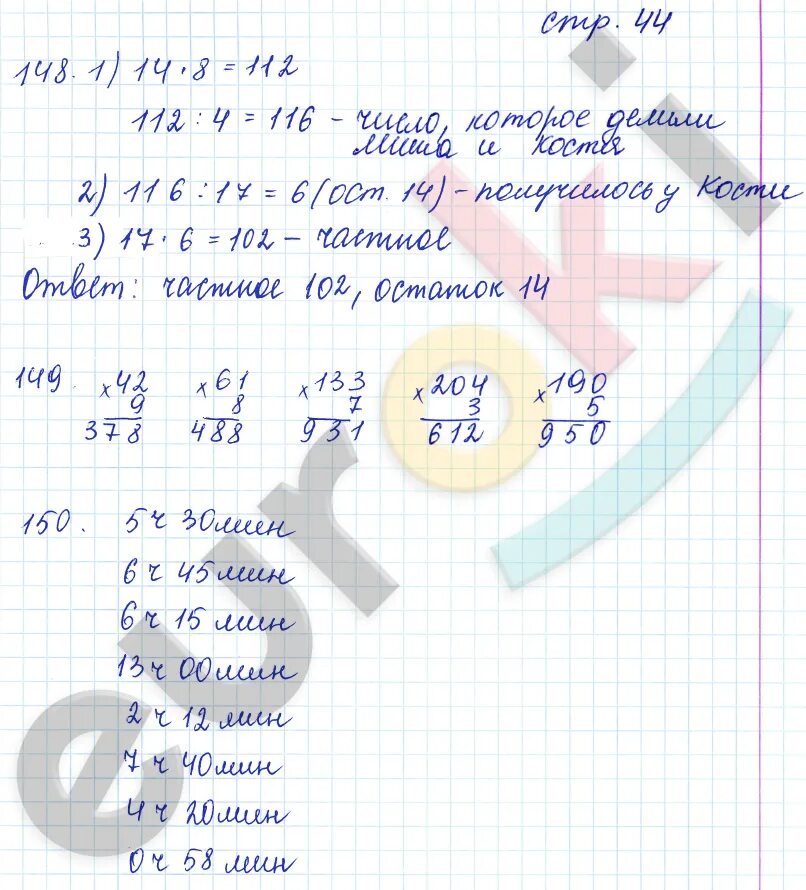 стр. 44
148. 1) 14 · 8 = 112
112 : 4 = 116 - число, которое делили
Миша и Костя
2) 116 : 17 = 6 (ост. 14) - получилось у Кости
3) 17 · 6 = 102 - частное
Ответ: частное 102, остаток 14
149. × 42 × 61 × 133 × 204 × 190
9 8 7 3 5
378 488 931 612 950
150. 5 ч 30 мин
6 ч 45 мин
6 ч 15 мин
13 ч 00 мин
2 ч 12 мин
7 ч 40 мин
4 ч 20 мин
0 ч 58 мин
euroki